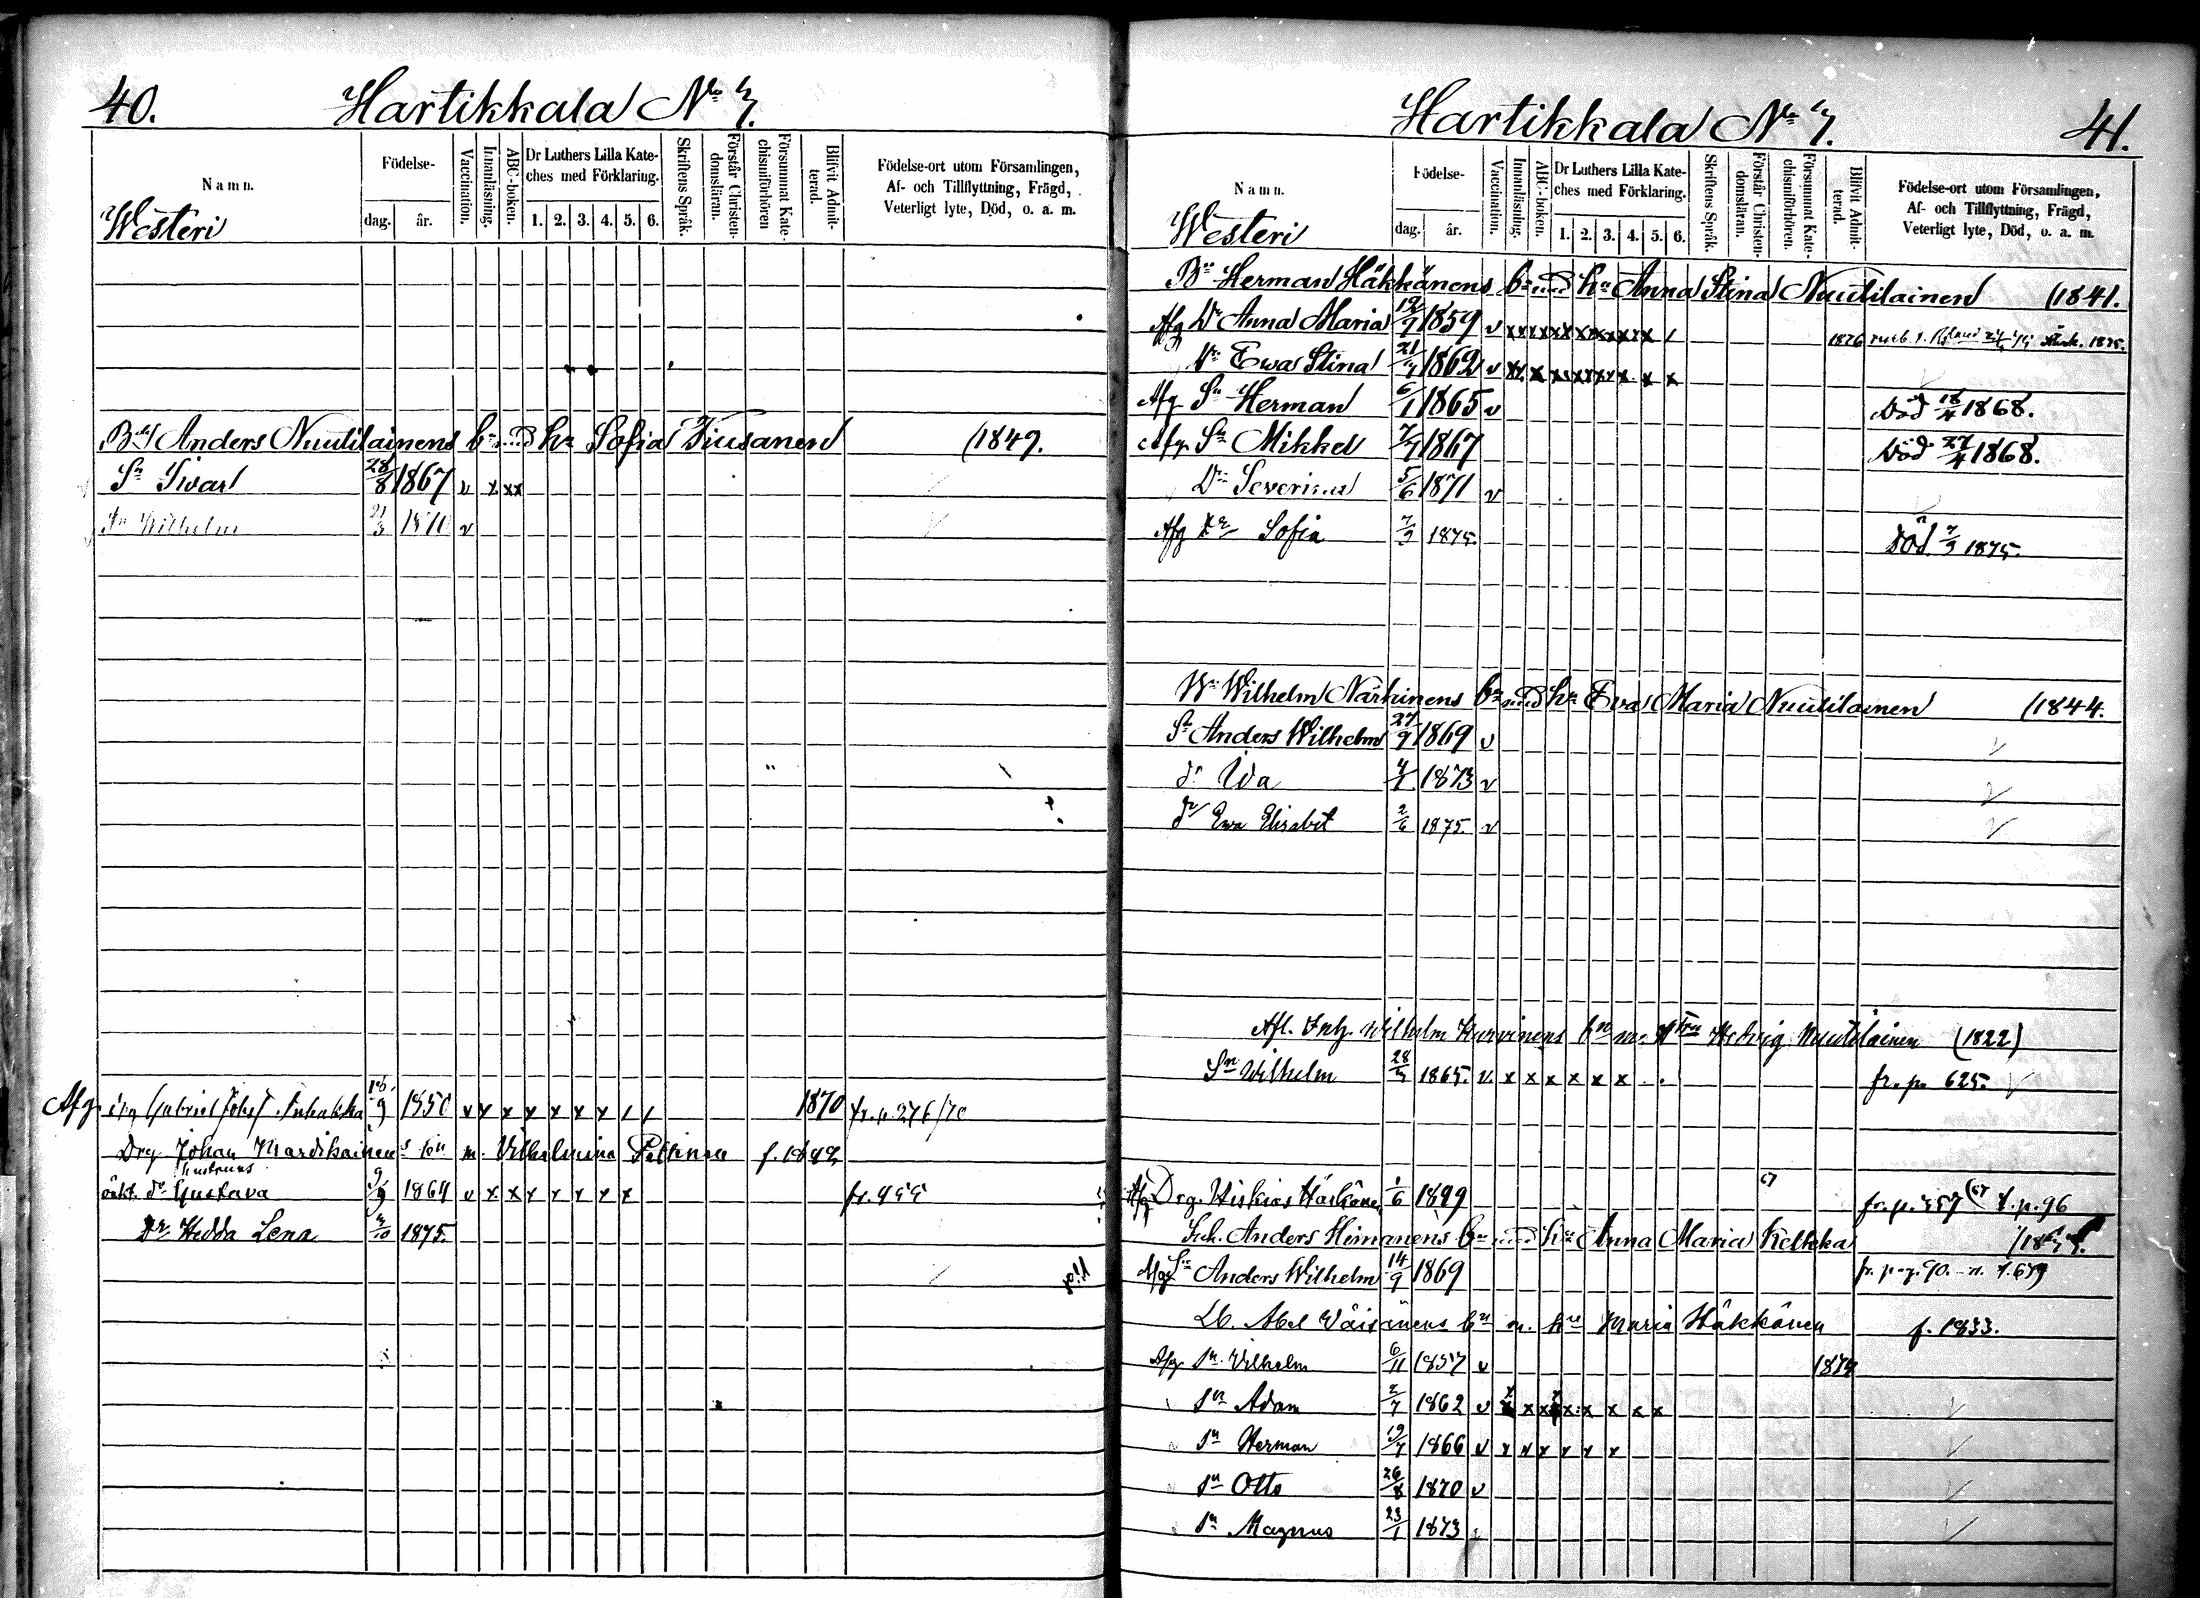 40. Hartikkala No 7.
Namn.
Födelse-
dag. år.
Vaccination.
Innanläsning.
ABC-boken.
Dr Luthers Lilla Kateches med Förklaring.
1. 2. 3. 4. 5. 6.
Skriftens Språk.
Förstår Christendomsläran.
Försummat Katechismiförhören
Blifvit Admitterad.
Födelse-ort utom Församlingen,
Af- och Tillflyttning, Frägd,
Veterligt lyte, Död, o. a. m.
Westeri
Anders Nuutilainens bn med hu Sofia (1849.
Sn Iwar 28/8 1867 v x x x
Sn Wilhelm 21/3 1870 v
Afg. Gabriel 1850 v x x x x x x / / 1870 fr. p. 276/70
Drg Johan m. Vilhelmina f. 1842
dr Gustava 9/9 1864 v x x x x x x x
Dr Hedda Lena 3/10 1875.
Hartikkala No 7. 41.
Namn.
Födelse-
dag. år.
Vaccination.
Innanläsning.
ABC-boken.
Dr Luthers Lilla Kateches med Förklaring.
1. 2. 3. 4. 5. 6.
Skriftens Språk.
Förstår Christendomsläran.
Försummat Katechismiförhören.
Blifvit Admitterad.
Födelse-ort utom Församlingen,
Af- och Tillflyttning, Frägd,
Veterligt lyte, Död, o. a. m.
Westeri
Bn Herman Häkkänens bn med hu Anna Stina Nuutilainen (1841.
Afg Dr Anna Maria 12/9 1859 v x x x x x x x x x / 1876
Dr Ewa Stina 1862 v x x x x x x x x x
Afg Sn Herman 6/1 1865 v Död 18/4 1868.
Afg Sn Mikkel 1867 Död 27/4 1868.
Dr Severina 5/6 1871 v
Afg Dr Sofia 7/3 1875. Död 7/3 1875.
Wilhelm Närhinens bn med hu Eva Maria Nuutilainen (1844.
Sn Anders Wilhelm 27/9 1869 v
dr Ida 4/1 1873 v
dr Ewa Elisabet 2/6 1875. v
Afl. Inh. Wilhelm Hurvinens bn m. Hedvig Nuutilainen (1822)
Sn Wilhelm 28/3 1865. v x x x x x x fr. p. 625.
Afg Drg. Hiskias 1/6 1849 fr. p. 357 t. p. 96
Inh. Anders Himanens bn med hu Anna Maria Kelkka
Afg Sn Anders Wilhelm 14/9 1869
Lb. Abel Väisänens bn m. hu Maria Häkkänen f. 1833.
Afg sn Vilhelm 6/11 1857 v 1874
sn Adam 2/7 1862 v x x x x x x x x x
sn Herman 19/7 1866 v x x x x x x
sn Otto 26/8 1870 v
sn Magnus 23/1 1873